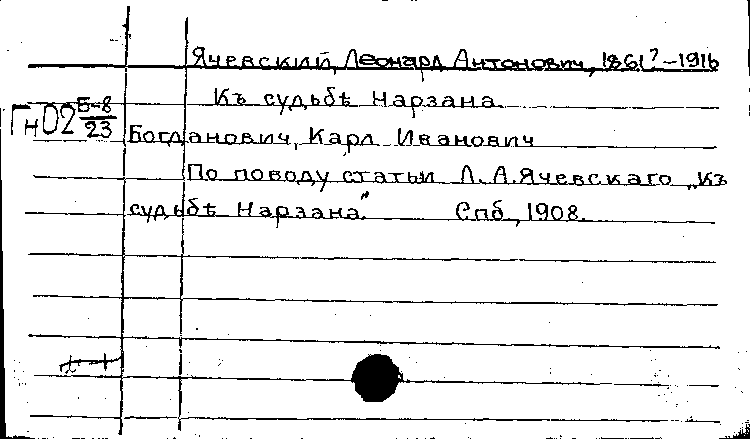 Ячевский, Леонард Антонович, 1861?-1916
Къ судьбѣ Нарзана.
Гн02 Б-8/23
Богданович, Карл Иванович
По поводу статьи Л. А. Ячевскаго „Къ
судьбѣ Нарзана". Спб., 1908.